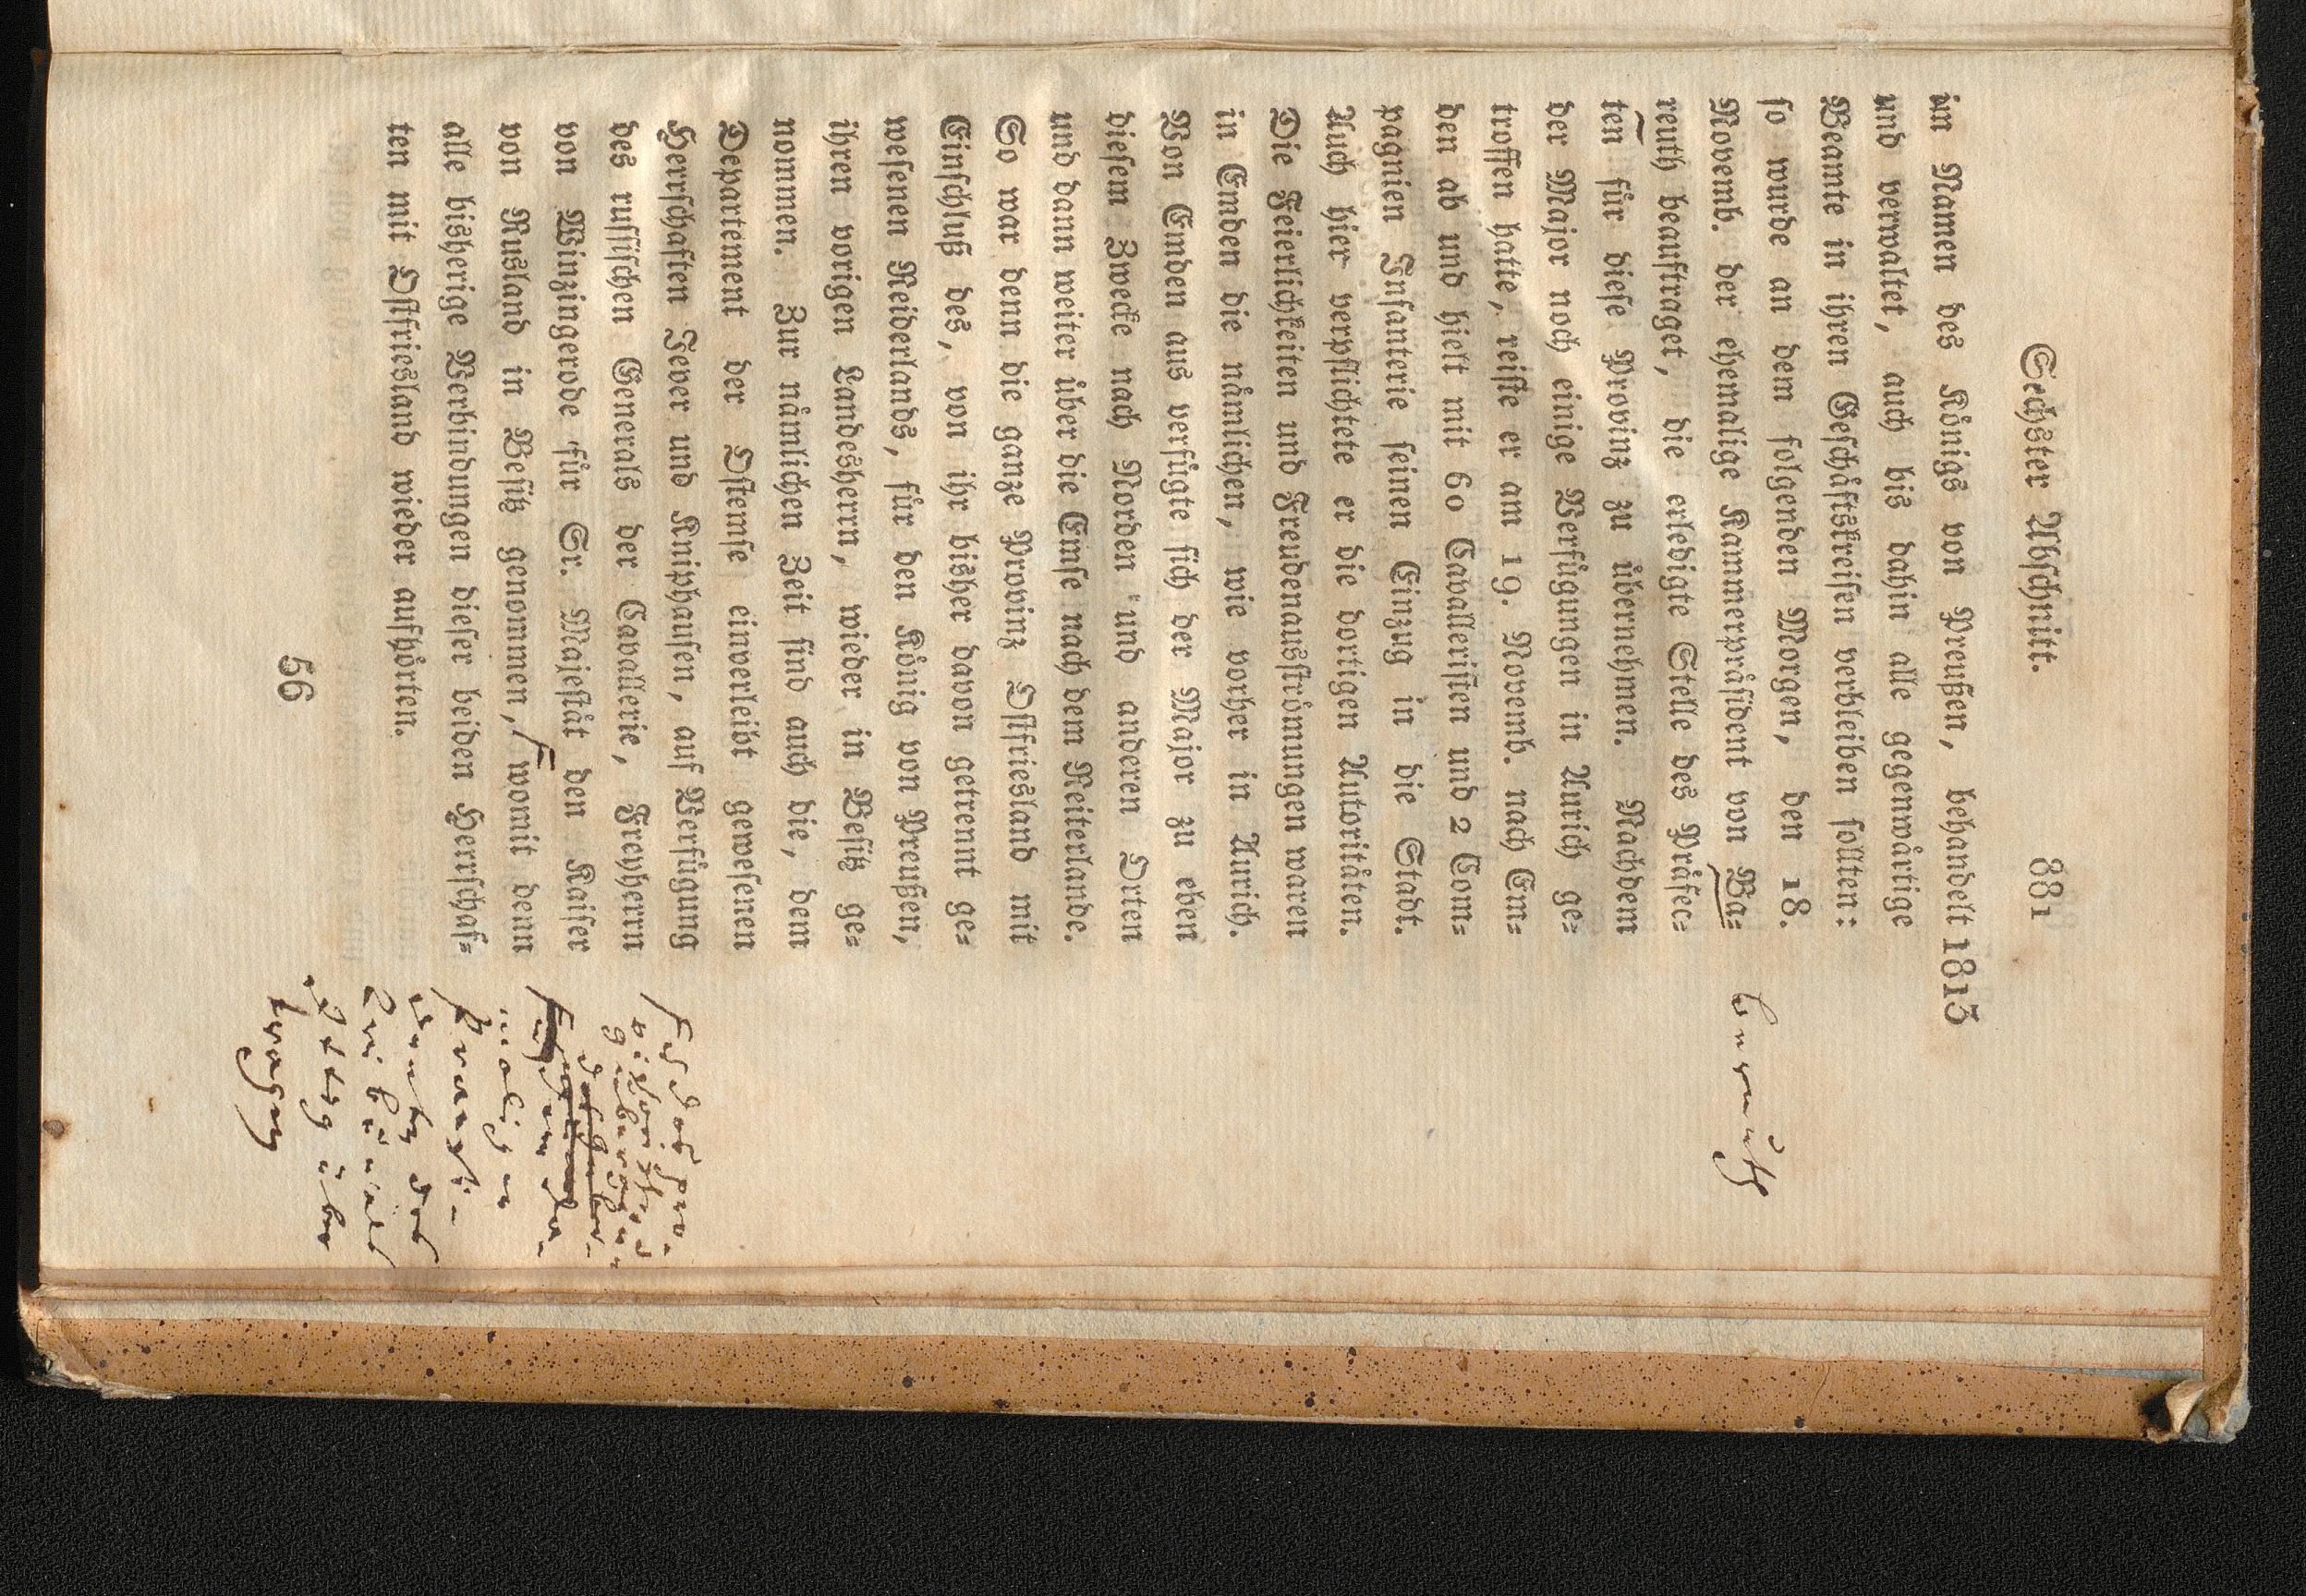 Sechster Abschnitt. 881
im Namen des Königs von Preußen, behandelt 1813
und verwaltet, auch bis dahin alle gegenwärtige
Beamte in ihren Geschäftskreisen verbleiben sollten:
so wurde an dem folgenden Morgen, den 18.
Novemb. der ehemalige Kammerpräsident von Ba=
reuth beauftraget, die erledigte Stelle des Präfec=
ten für diese Provinz zu übernehmen. Nachdem
der Major noch einige Verfügungen in Aurich ge=
troffen hatte, reiste er am 19. Novemb. nach Em=
den ab und hielt mit 60 Cavalleristen und 2 Com=
pagnien Infanterie seinen Einzug in die Stadt.
Auch hier verpflichtete er die dortigen Autoritäten.
Die Feierlichkeiten und Freudenausströmungen waren
in Emden die nämlichen, wie vorher in Aurich.
Von Emden aus verfügte sich der Major zu eben
diesem Zwecke nach Norden und anderen Orten
und dann weiter über die Emse nach dem Reiterlande.
So war denn die ganze Provinz Ostfriesland mit
Einschluß des, von ihr bisher davon getrennt ge=
wesenen Reiderlands, für den König von Preußen,
ihren vorigen Landesherrn, wieder in Besitz ge=
nommen. Zur nämlichen Zeit sind auch die, dem
Departement der Ostemse einverleibt gewesenen
Herrschaften Jever und Kniphausen, auf Verfügung
des russischen Generals der Cavallerie, Freyherrn
von Winzingerode für Sr. Majestät den Kaiser
von Rusland in Besitz genommen, womit denn
alle bisherige Verbindungen dieser beiden Herrschaf=
ten mit Ostfriesland wieder aufhörten.
56